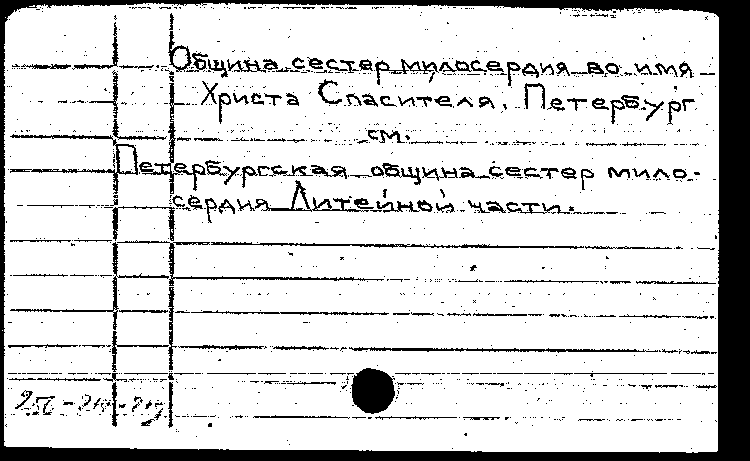 Община сестер милосердия во имя
Христа Спасителя, Петербург
см.
Петербургская община сестер мило-
сердия Литейной части.